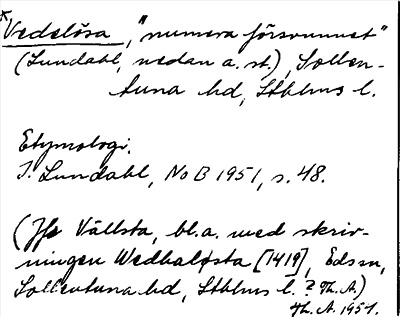 *Vedelösa, "numera försvunnet"
(Lundahl, nedan a. st.), Sollen-
tuna hd, Sthlms l.
Etymologi.
I. Lundahl, NoB 1951, s. 48.
(Jfr Vällsta, bl.a. med skriv-
ningen Wedhaløsta [1419], Eds sn,
Sollentuna hd, Sthlms l. ? Th. A.)
Th. A. 1951.